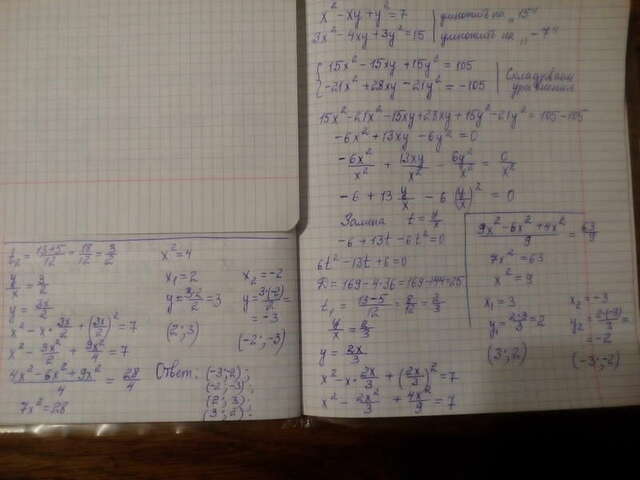 x² - xy + y² = 7 | умножить на „15"
3x² - 4xy + 3y² = 15 | умножить на „-7"
{ 15x² - 15xy + 15y² = 105
-21x² + 28xy - 21y² = -105 | Складываем уравнения
15x² - 21x² - 15xy + 28xy + 15y² - 21y² = 105 - 105
-6x² + 13xy - 6y² = 0
-6x²/x² + 13xy/x² - 6y²/x² = 0/x²
-6 + 13 y/x - 6 (y/x)² = 0
Замена t = y/x
-6 + 13t - 6t² = 0
6t² - 13t + 6 = 0
D = 169 - 4·36 = 169 - 144 = 25
t₁ = (13-5)/12 = 8/12 = 2/3
y/x = 2/3
y = 2x/3
x² - x·2x/3 + (2x/3)² = 7
x² - 2x²/3 + 4x²/9 = 7
(9x² - 6x² + 4x²)/9 = 63/9
7x² = 63
x² = 9
x₁ = 3 x₂ = -3
y₁ = 2·3/3 = 2 y₂ = 2·(-3)/3 =
= -2
(3; 2) (-3; -2)
t₂ = (13+5)/12 = 18/12 = 3/2
y/x = 3/2
y = 3x/2
x² - x·3x/2 + (3x/2)² = 7
x² - 3x²/2 + 9x²/4 = 7
(4x² - 6x² + 9x²)/4 = 28/4
7x² = 28
x² = 4
x₁ = 2 x₂ = -2
y = 3·2/2 = 3 y = 3·(-2)/2 =
= -3
(2; 3) (-2; -3)
Ответ: (-3; -2);
(-2; -3);
(2; 3);
(3; 2).